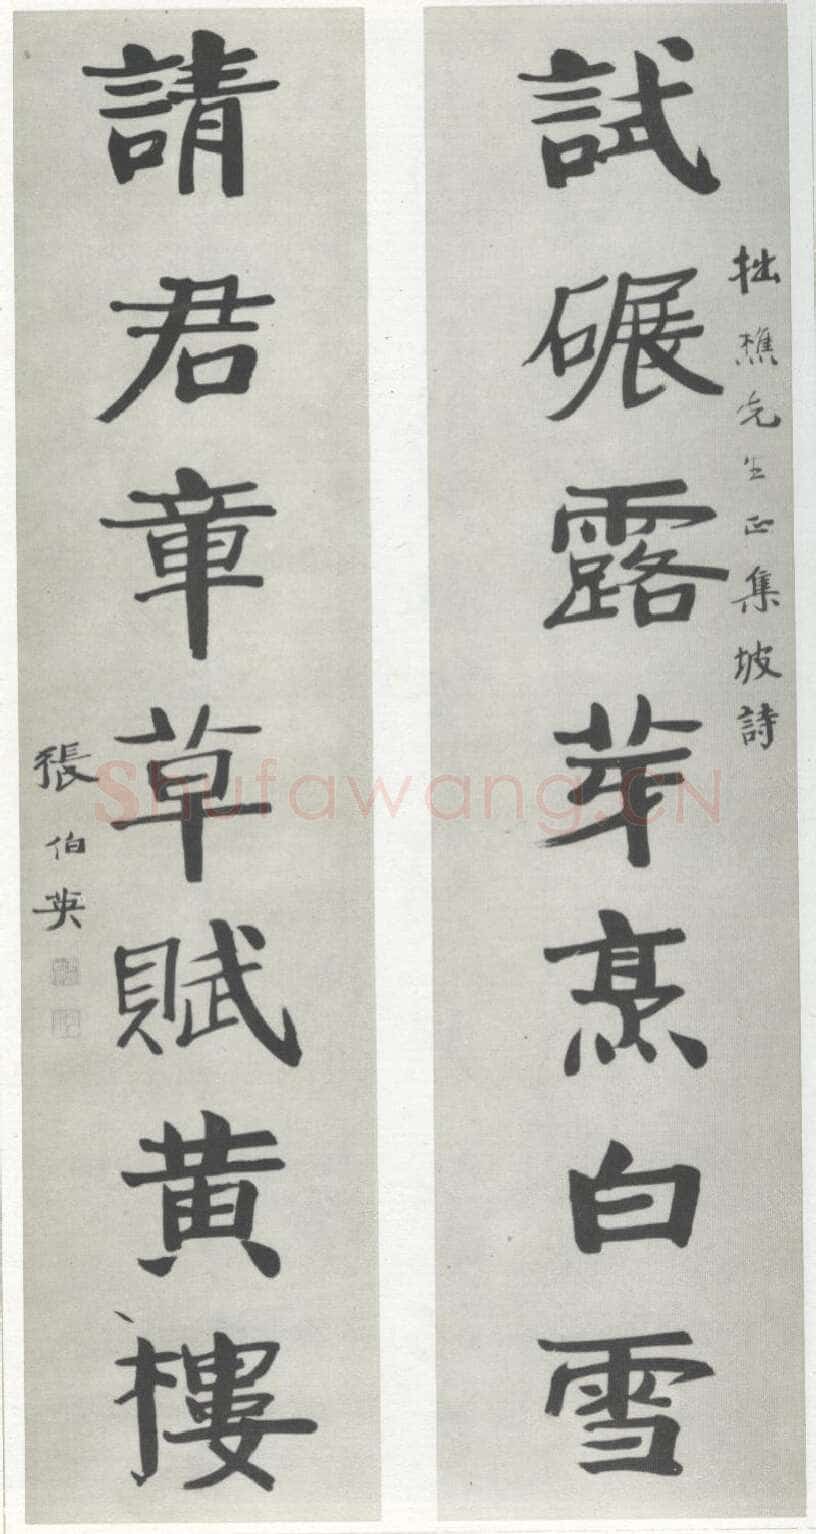 試碾露芽烹白雪
拙樵先生正集坡詩
請君章草賦黃樓
張伯英
Shufawang.CN